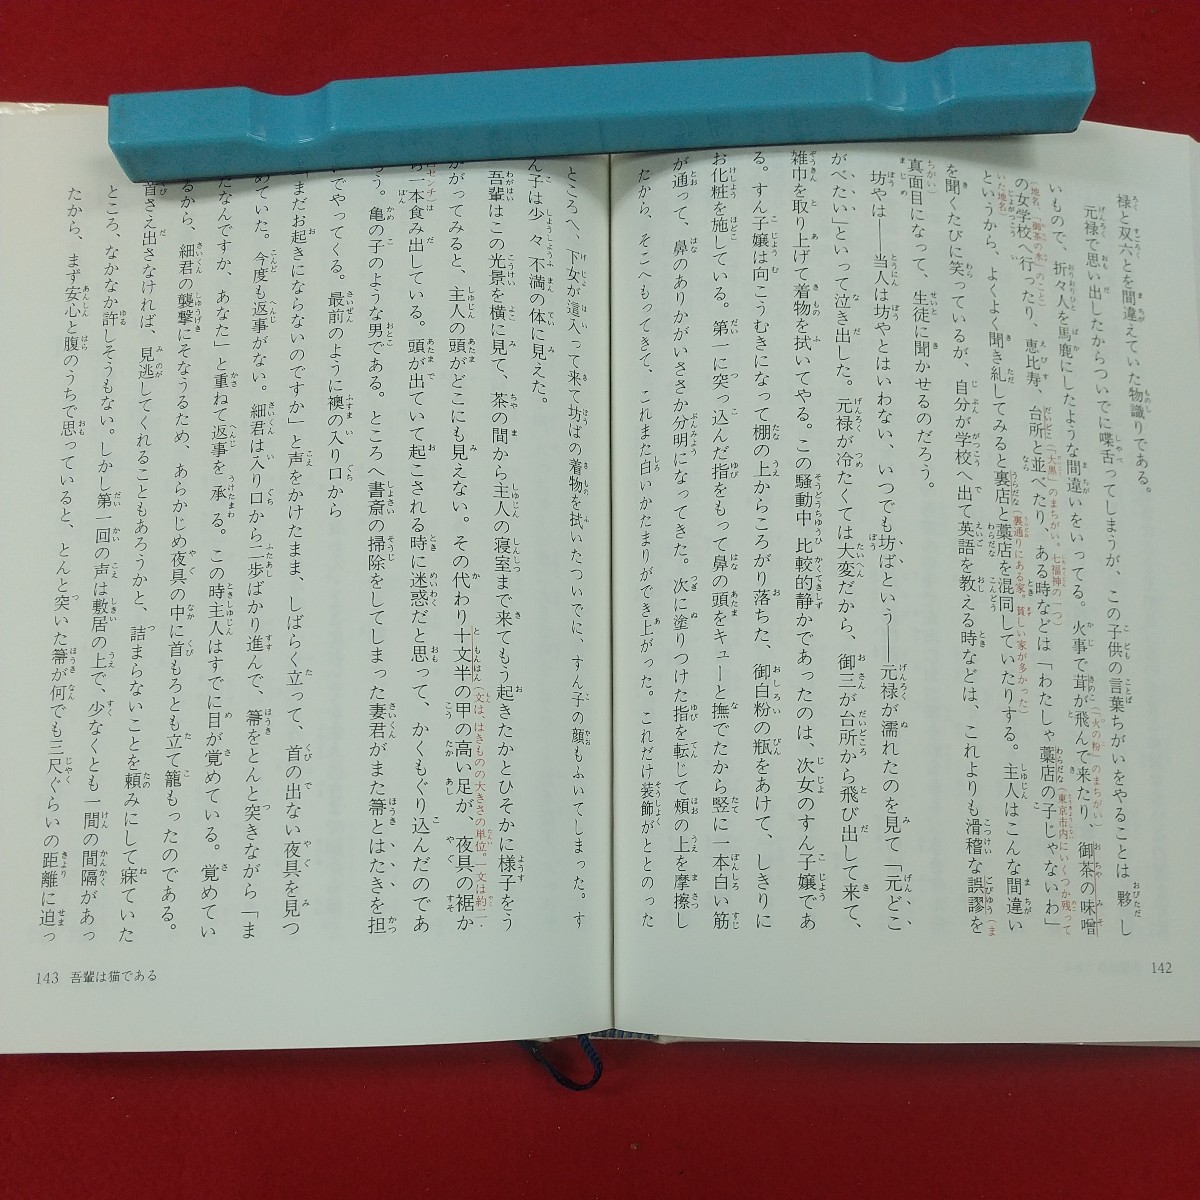 禄と双六とを間違えていた物識りである。
元禄で思い出したからついでに喋舌ってしまうが、この子供の言葉ちがいをやることは夥し
いもので、折々人を馬鹿にしたような間違いをいってる。火事で茸(「火の粉」のまちがい)が飛んで来たり、御茶の味噌
(地名、「御茶の水」のこと)の女学校へ行ったり、恵比寿、台所(「大黒」のまちがい。七福神の一つ)と並べたり、ある時などは「わたしゃ藁店(東京市内にいくつか残って
いた地名)の子じゃないわ」
というから、よくよく聞き糺してみると裏店(裏通りにある家。貧しい家が多かった)と藁店を混同していたりする。主人はこんな間違い
を聞くたびに笑っているが、自分が学校へ出て英語を教える時などは、これよりも滑稽な誤謬(ま
ちがい)を
真面目になって、生徒に聞かせるのだろう。
坊やは——当人は坊やとはいわない、いつでも坊ばという——元禄が濡れたのを見て「元どこ
がべたい」といって泣き出した。元禄が冷たくては大変だから、御三が台所から飛び出して来て、
雑巾を取り上げて着物を拭いてやる。この騒動中比較的静かであったのは、次女のすん子嬢であ
る。すん子嬢は向こうむきになって棚の上からころがり落ちた、御白粉の瓶をあけて、しきりに
お化粧を施している。第一に突っ込んだ指をもって鼻の頭をキューと撫でたから竪に一本白い筋
が通って、鼻のありかがいささか分明になってきた。次に塗りつけた指を転じて頬の上を摩擦し
たから、そこへもってきて、これまた白いかたまりができ上がった。これだけ装飾がととのった
142
ところへ、下女が這入って来て坊ばの着物を拭いたついでに、すん子の顔もふいてしまった。す
ん子は少々不満の体に見えた。
吾輩はこの光景を横に見て、茶の間から主人の寝室まで来てもう起きたかとひそかに様子をう
がってみると、主人の頭がどこにも見えない。その代わり十文半(文は、はきものの大きさの単位。一文は約二・
センチ)の甲の高い足が、夜具の裾か
一本食み出している。頭が出ていて起こされる時に迷惑だと思って、かくもぐり込んだのであ
う。亀の子のような男である。ところへ書斎の掃除をしてしまった妻君がまた箒とはたきを担
いでやってくる。最前のように襖の入り口から
まだお起きにならないのですか」と声をかけたまま、しばらく立って、首の出ない夜具を見つ
めていた。今度も返事がない。細君は入り口から二歩ばかり進んで、箒をとんと突きながら「ま
だなんですか、あなた」と重ねて返事を承る。この時主人はすでに目が覚めている。覚めてい
るから、細君の襲撃にそなうるため、あらかじめ夜具の中に首もろとも立て籠もったのである。
首さえ出さなければ、見逃してくれることもあろうかと、詰まらないことを頼みにして寐ていた
ところ、なかなか許しそうもない。しかし第一回の声は敷居の上で、少なくとも一間の間隔があっ
たから、まず安心と腹のうちで思っていると、とんと突いた箒が何でも三尺ぐらいの距離に迫っ
143 吾輩は猫である